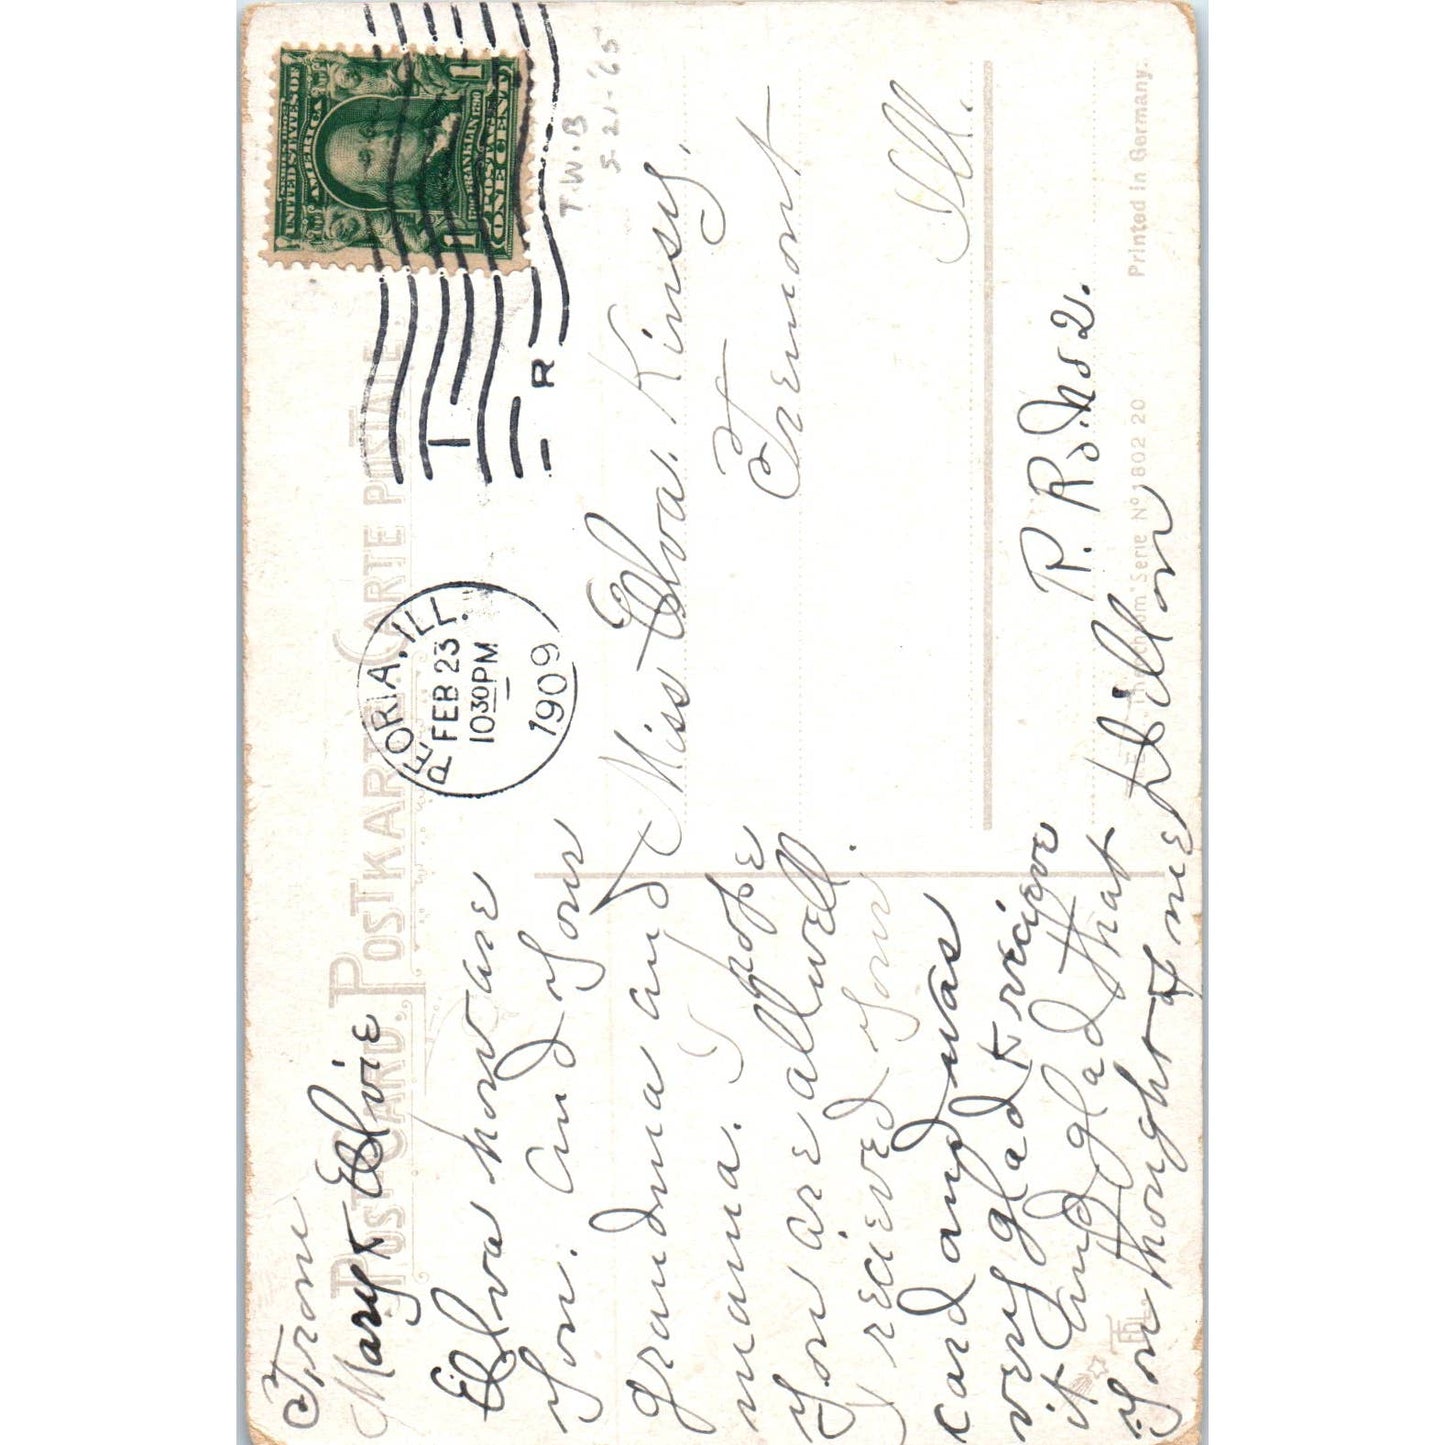 From
Mary & Elvie
Elva how are
you. And your
grandma and
mama. I hope
you are all well
I recieved your
card and was
very glad to recieve
it and glad that
you thought of me
POSTCARD. POSTKARTE. CARTE POSTALE.
PEORIA, ILL.
FEB 23
10 30 PM
1909
R
SERIES 1902
UNITED STATES OF
AMERICA
FRANKLIN
POSTAGE
ONE CENT
1
1
T.W.B
5-21-'65
Miss Elva. Kinsey.
Tremont
Ill.
R. R. No 2.
Dillon
Serie No 1802 20
Printed in Germany.